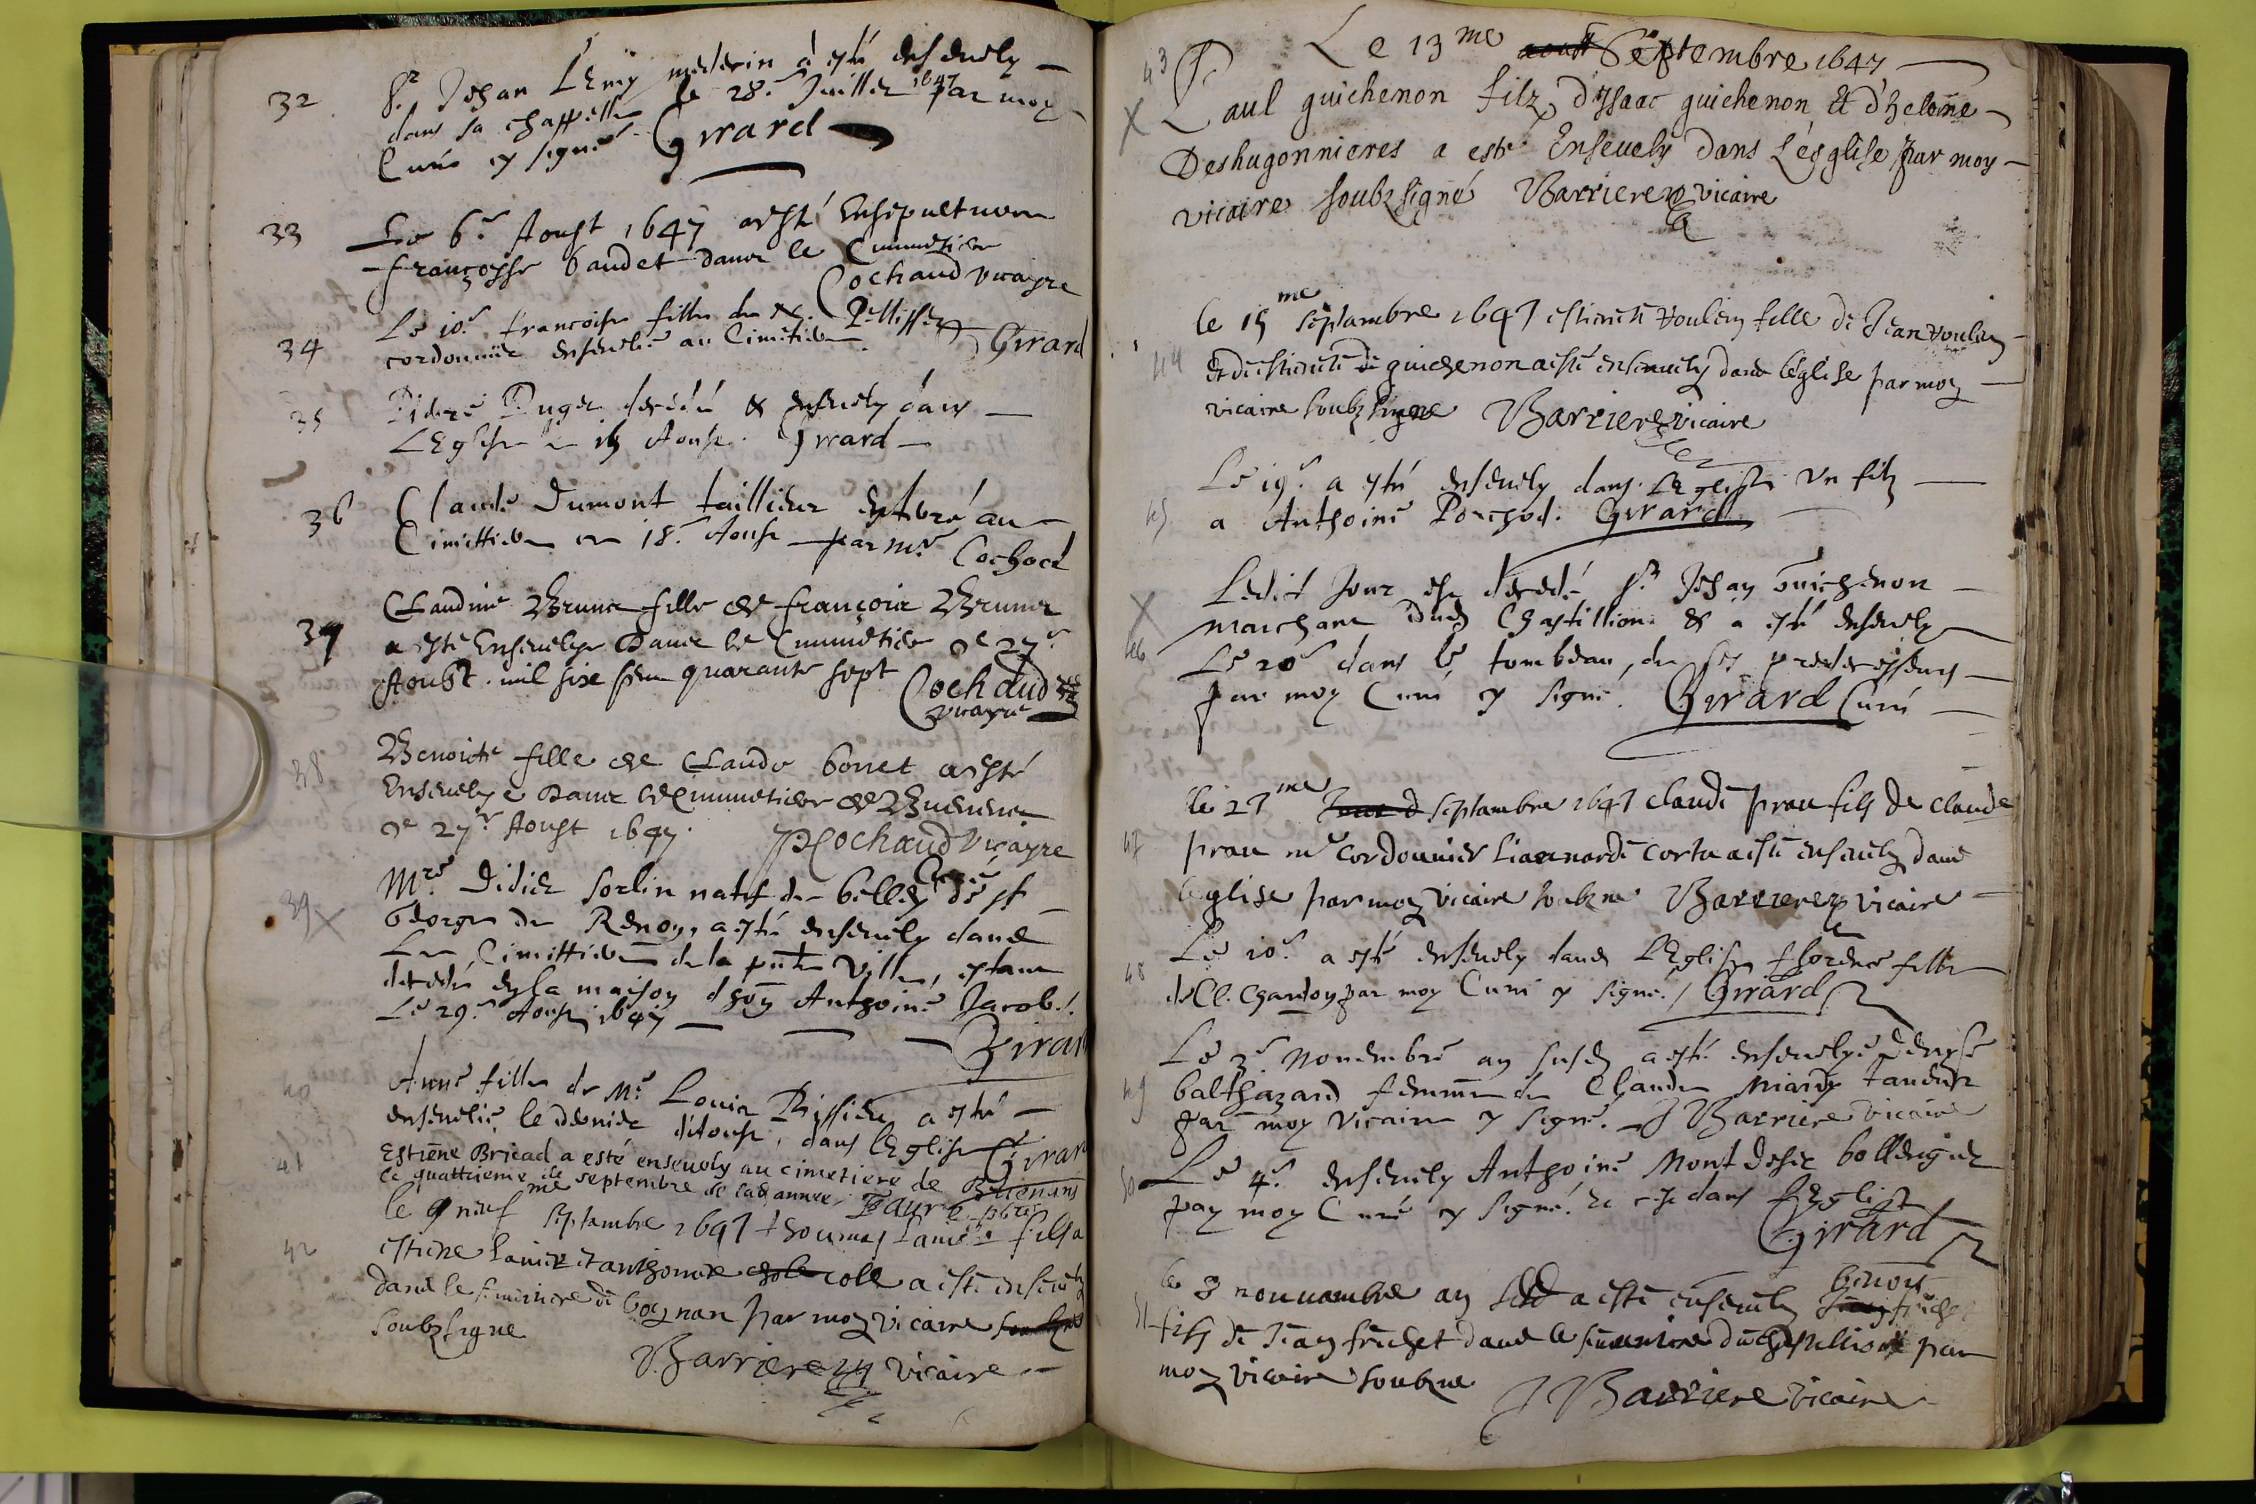 32
Sr. Jehan Lemy medecin a esté ensevely
dans sa chappelle le 28e Juillet 1647 par moy
Curé sy signé. Girard
33
Le 6e Aoust 1647 a esté ensepulturee
françoyse baudet dans le Cimmetiere
Cochaud vicayre
34
Le 10e francoise fille de Pellisson Girard
cordonnier ensevelie au Cimetiere
35
Pierre Puget decedé & ensevely dans
L'Eglise le Aoust. Girard
36
Claude Dumont taillieur enterré au
Cimittiere ce 18e Aoust par Mre Cochod
37
Claudine Brunet fille de françois Brunet
a esté Ensevelye dans le Cimmetiere ce 27e
Aoubt mil six sens quarante sept Cochaud
vicayre
38
Benoicte fille de Claude bonet a esté
Ensevelye dans le Cimmetiere de Buenens
ce 27e Aoust 1647. Cochaud vicayre
39
Mre Didier sorlin natif de belley Curé de st
George de Renon, a esté ensevely dans
Le Cimittiere de la pnte ville, estant
decedé en la maison d'hon Anthoine Jacob.
Le 29e Aoust 1647
Girard
40
Anne fille de Me Louis Bissieu a esté
ensevelie, le dernier d'Aoust, dans l'Eglise Girard
41
Estiene Bricad a esté ensevely au cimetiere de Buenans
le quattrieme de septembre de lad annee. Faure pbre
42
le 9 neuf me septambre 1647 thoumas Lanier fils a
estiene Lanier et anthonete coll a esté ensevely
dans le simitiere de boegnan par moy vicaire
soubzsigne
Barriere vicaire
43
Le 13me aoust Septembre 1647
Paul guichenon filz d'ysaac guichenon Et d'helaine
Deshugonnieres a esté Ensevely dans L'esglise par moy
vicaire soubzsigné Barriere vicaire
44
le 15me septambre 1647 estienete voulen fille de Jean voulen
Et de estienete de guichenon a esté ensevely dans l'eglise par moy
vicaire soubzsigne Barriere vicaire
45
Le 19e a esté ensevely dans L'Eglise un filz
a Anthoine Porchod. Girard
46
Ledit Jour est decedé sr Jehan Guichenon
marchant dud Chastillion & a esté ensevely
Le 20e dans le tombeau de ses predecesseurs
par moy Curé sy signé. Girard Curé
47
le 27me septambre 1647 claude prau fils de claude
prau me cordounier Lienarde cortu a esté ensevely dans
l'eglise par moy vicaire soubzne Barriere vicaire
48
Le 10e a esté ensevely dans L'Eglise florence fille
de Cl. Chardon par moy Curé sy signé. Girard
49
Le 3e Novembre an susd a esté ensevelye Denyse
balthazard femme de Claude Miard Tandeur
par moy vicaire sy signé. J Barriere vicaire
50
Le 4e ensevely Anthoine Montdesir bollengier
par moy Curé sy signé. & c'est dans l'Eglise
Girard
51
le 8 nouvambre an susd a esté ensevely benoy frichet
fils de Jean frichet dans le simitiere du chatillion par
moy vicaire soubzne
J Barriere vicaire